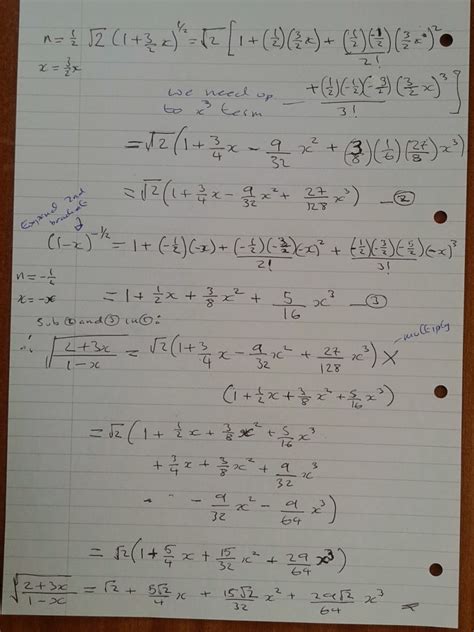 n=½ √2 (1+3/2x)^1/2 = √2 [1+(½)(3/2x) + (½)(-½)(3/2x)²/2!
x=3/2x
+ (½)(-½)(-3/2)(3/2x)³/3!]
we need up
to x³ term
= √2 (1+3/4x - 9/32x² + (3/8)(1/6)(27/8)x³)
= √2 (1+3/4x - 9/32x² + 27/128x³) — ②
Expand 2nd
bracket
(1-x)^-1/2 = 1+(-½)(-x)+(-½)(-3/2)(-x)²/2! + (-½)(-3/2)(-5/2)(-x)³/3!
n=-½
x=-x
= 1+½x+3/8x² + 5/16x³ — ③
sub ② and ③ in ①:
∴ √(2+3x/1-x) = √2 (1+3/4x - 9/32x² + 27/128x³) X
multiply
(1+½x+3/8x²+5/16x³)
= √2 (1+½x+3/8x²+5/16x³
+3/4x+3/8x²+9/32x³
" " -9/32x² -9/64x³)
= √2 (1+5/4x+15/32x²+29/64x³)
√(2+3x/1-x) = √2 + 5√2/4x + 15√2/32x² + 29√2/64x³